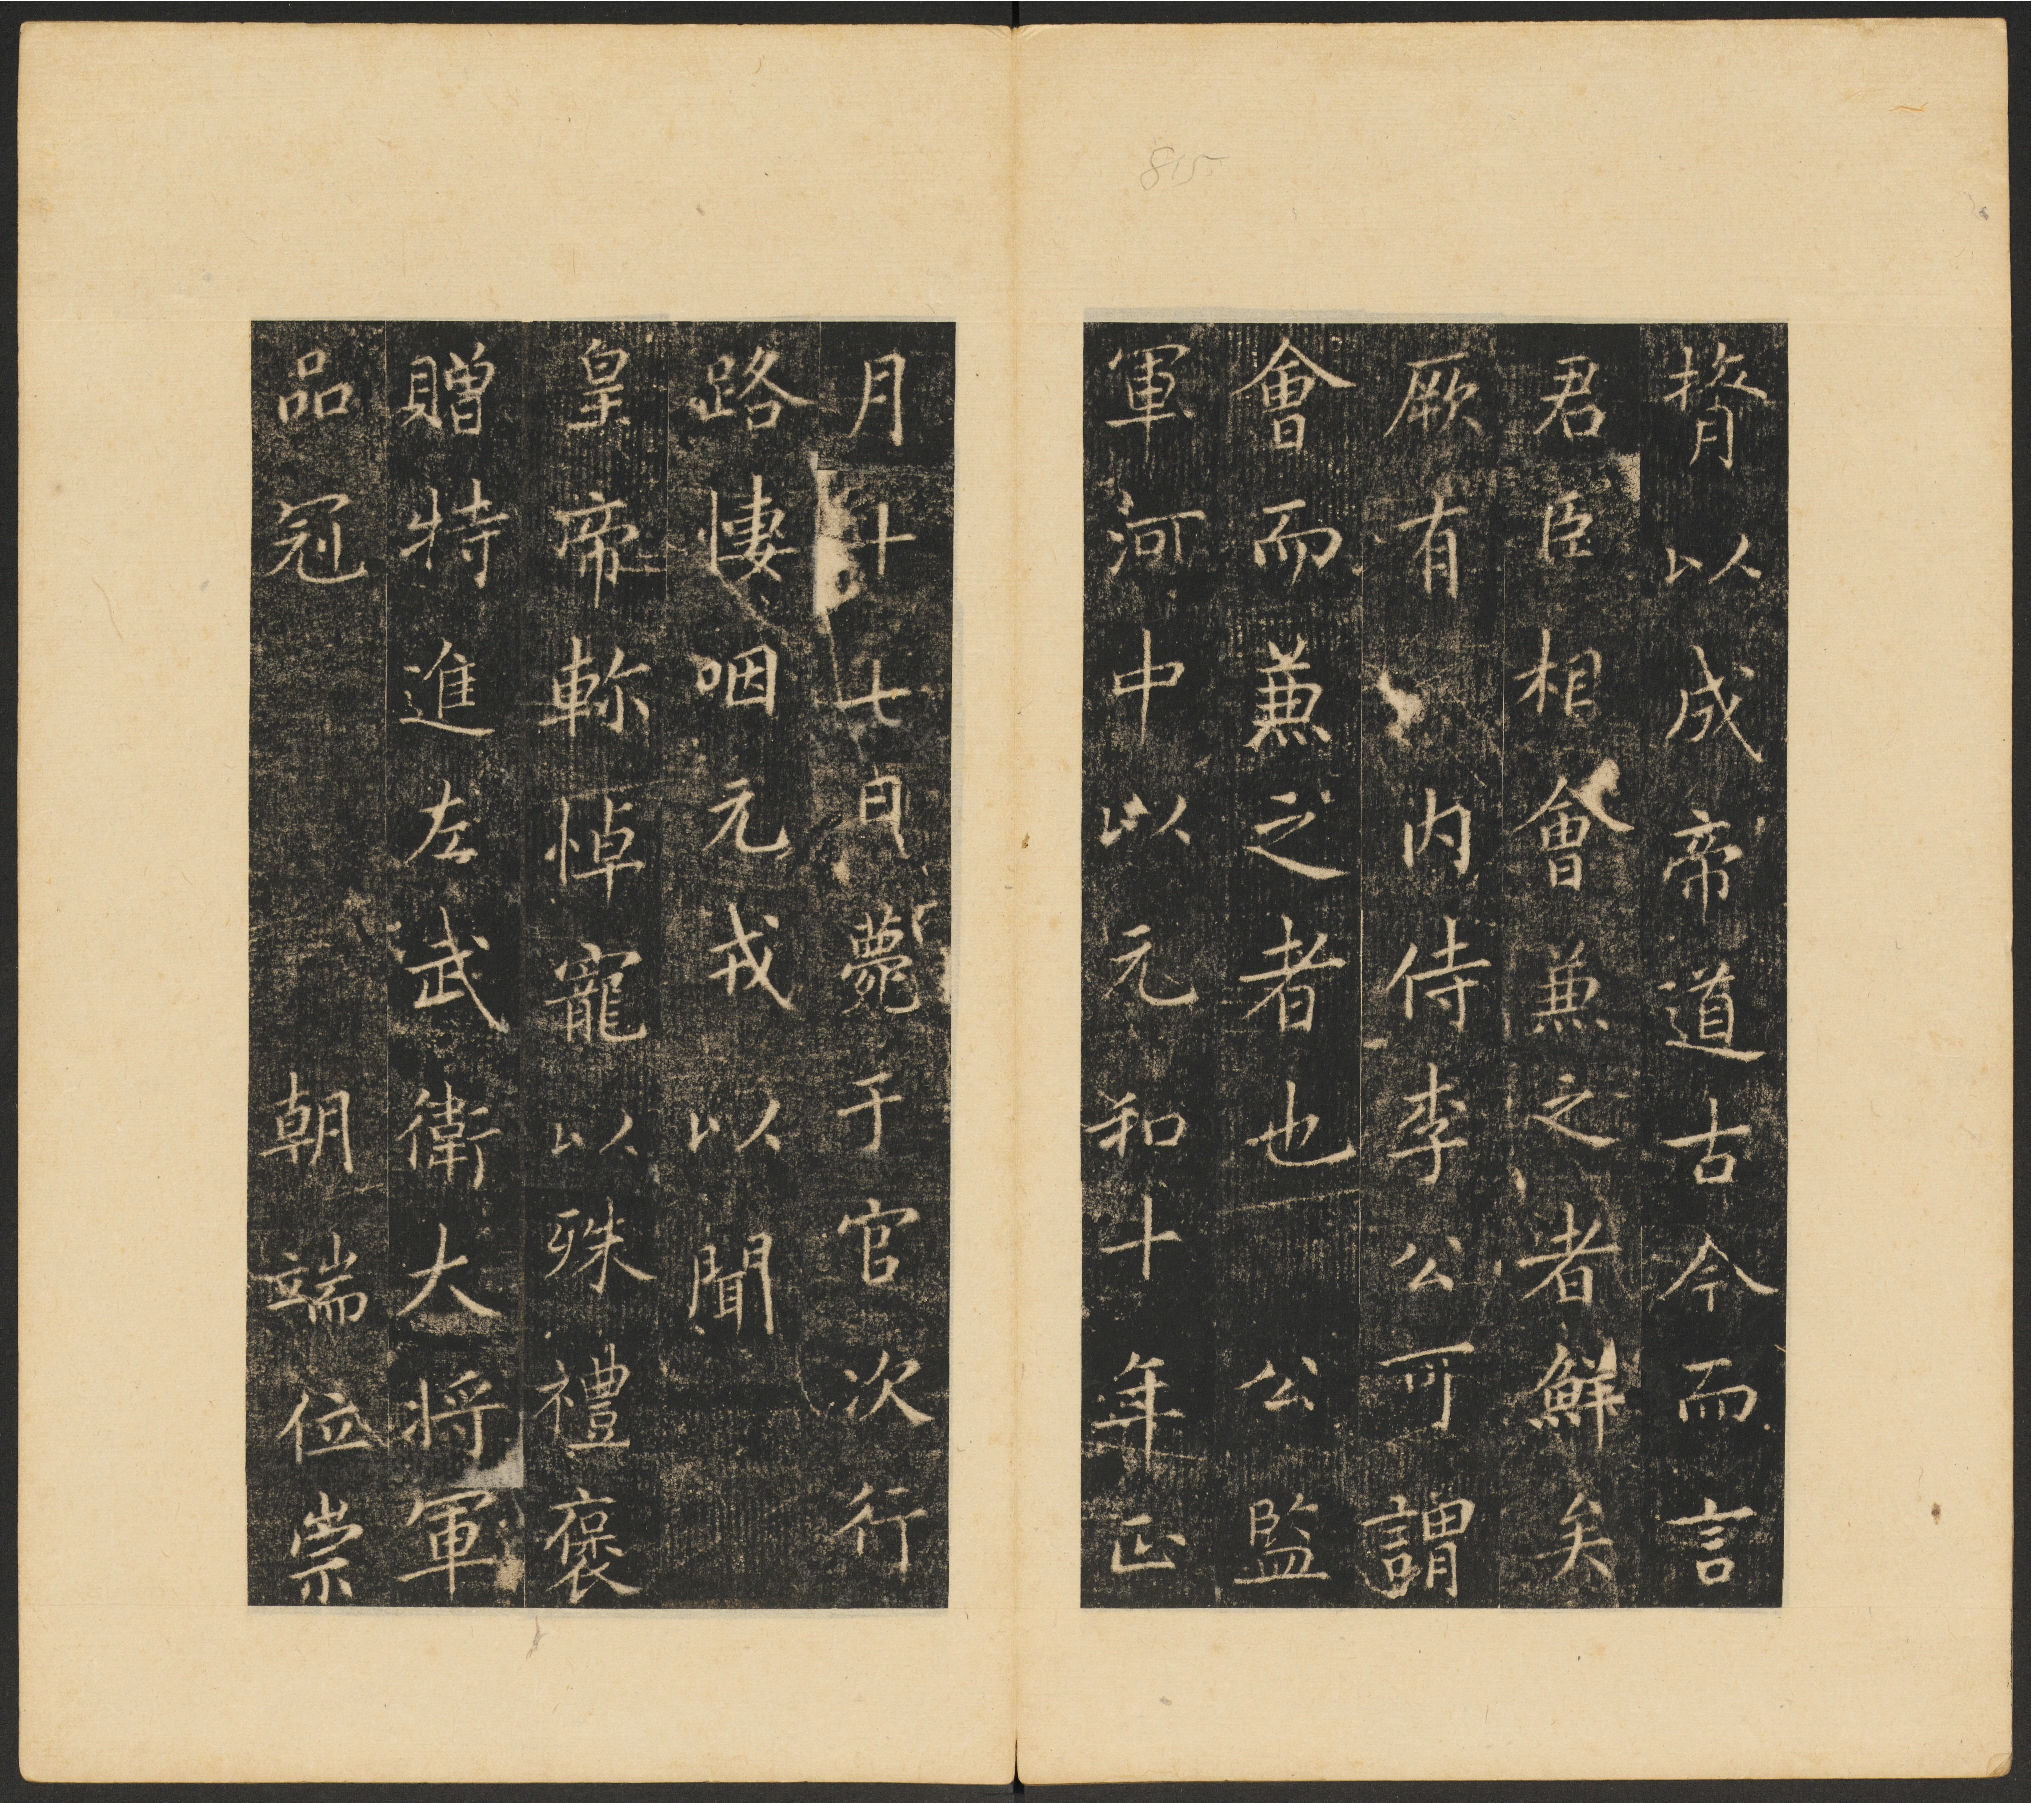 815
膂以成帝道古今而言
君臣相會兼之者鮮矣
厥有內侍李公可謂
會而兼之者也公監
軍河中以元和十年正
月十七日薨于官次行
路悽咽元戎以聞
皇帝軫悼寵以殊禮褒
贈特進左武衛大將軍
品冠朝端位崇